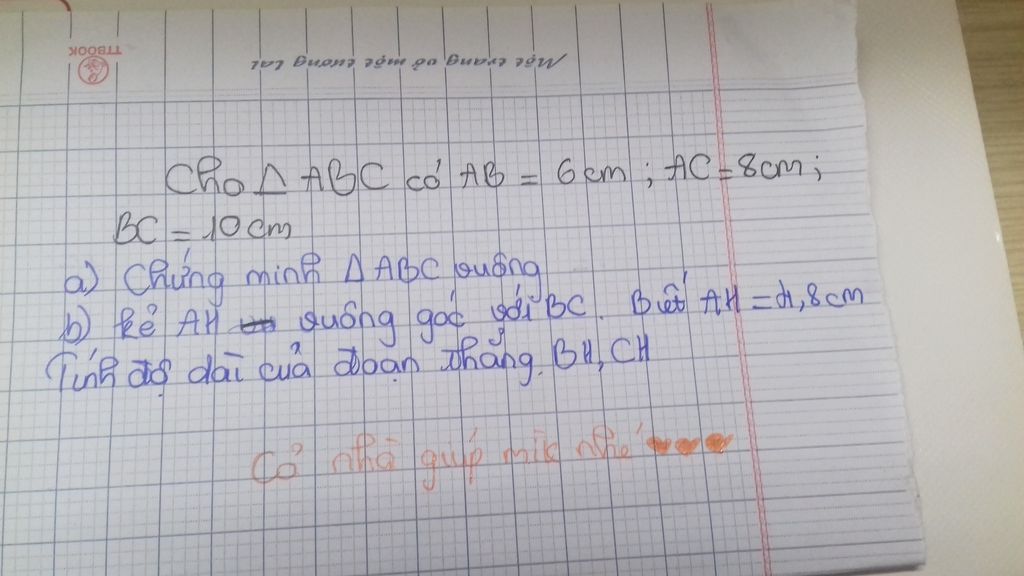 TTBOOK
Một trang vở một tương lai
Cho Δ ABC có AB = 6 cm ; AC = 8cm ;
BC = 10 cm
a) Chứng minh Δ ABC vuông
b) Kẻ AH vuông góc với BC. Biết AH = 4,8cm
Tính độ dài của đoạn thẳng. BH, CH
Cả nhà giúp mik nhé